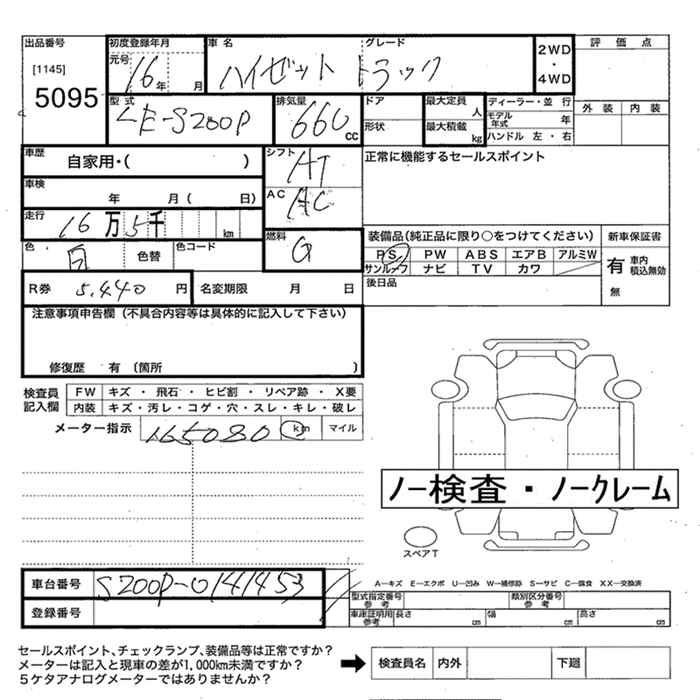 出品番号 初度登録年月 車名 グレード 2WD・4WD 評価点
[1145] 元号 16年 月 ハイゼット トラック
5095 型式 LE-S200P 排気量 660 CC ドア 最大定員 人 ディーラー・並行 外装 内装
形状 最大積載 kg モデル年式 年
ハンドル 左・右
車歴 自家用・( ) シフト AT 正常に機能するセールスポイント
車検 年 月( 日) AC AC
走行 16万5千 km 燃料 G 装備品(純正品に限り○をつけてください) 新車保証書
色 白 色替 色コード PS PW ABS エアB アルミW 有 車内積込無効
サンルーフ ナビ TV カワ 無
R券 5,440 円 名変期限 月 日 後日品
注意事項申告欄(不具合内容等は具体的に記入して下さい)
修復歴 有 (箇所 )
検査員記入欄 FW キズ・飛石・ヒビ割・リペア跡・X要
内装 キズ・汚レ・コゲ・穴・スレ・キレ・破レ
メーター指示 165080 km マイル
ノー検査・ノークレーム
スペアT
車台番号 S200P-0141453 A−キズ E−エクボ U−凹み W−補修跡 S−サビ C−腐食 XX−交換済
型式指定番号 参考 類別区分番号 参考
登録番号 車庫証明用 参考 長さ cm 幅 cm 高さ cm
セールスポイント、チェックランプ、装備品等は正常ですか?
メーターは記入と現車の差が1,000km未満ですか? 検査員名 内外 下廻
5ケタアナログメーターではありませんか?